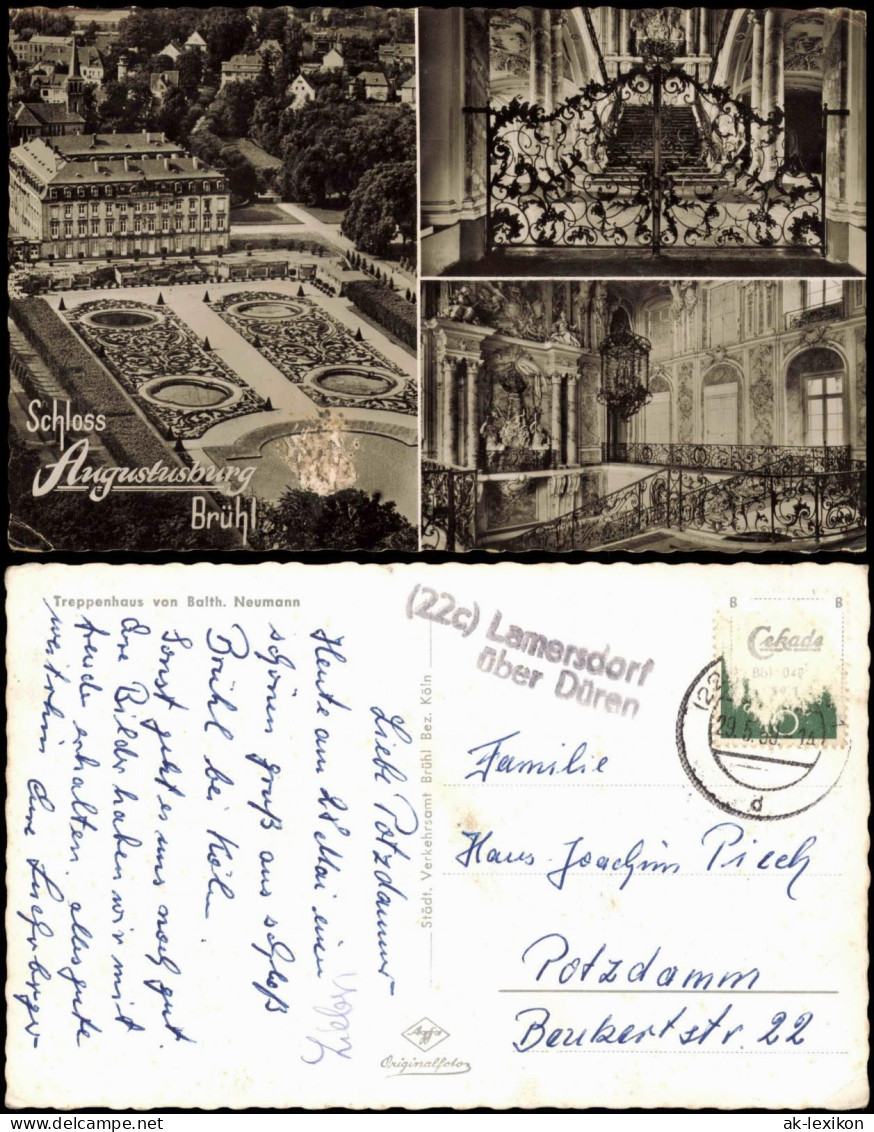 Schloss
Augustusburg
Brühl
Treppenhaus von Balth. Neumann
Liebe Potzdammer
Heute am 28 Mai einen
schönen gruß aus schloß
Brühl bei Köln.
Sonst geht es uns noch gut
Eure Bilder haben wir mit
freude erhalten. alles gute
weiterhin Eure
Städt. Verkehrsamt Brühl Bez. Köln
Agfa
Originalfoto
(22c) Lamersdorf
über Düren
B B
Cekade
(22
29.5.
d
Familie
Hans-Joachim Piech
Potzdamm
Beukertstr. 22
ak-lexikon.com